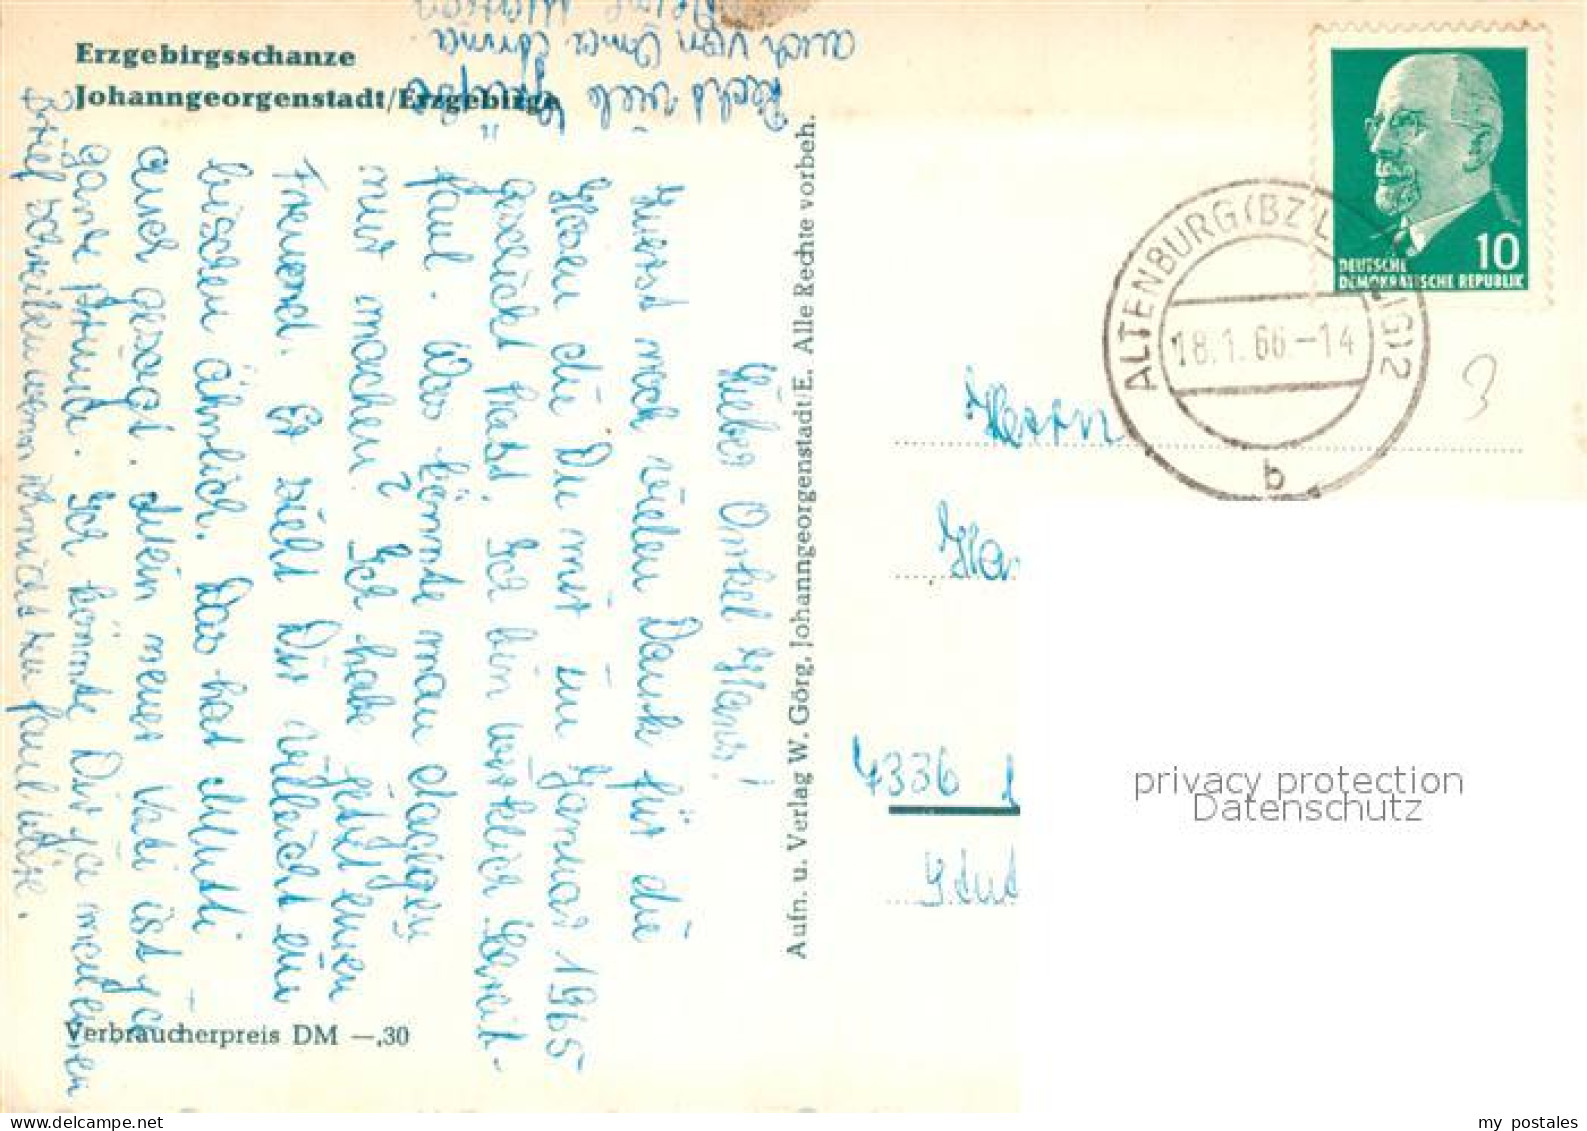 Erzgebirgsschanze
Johanngeorgenstadt/Erzgebirge
Recht viele Grüße
auch von Oma Anna
Lieber Onkel Hans!
Zuerst noch vielen Dank für die
Hosen die Du mir im Januar 1965
geschickt hast. Ich bin wirklich schreib-
faul. Was könnte man dagegen
nur machen? Ich habe jetzt einen
Freund. Er sieht Dir vielleicht ein
bisschen ähnlich. Das hat Mutti
auch gesagt. Mein neuer Vati ist ja
ganz prima. Ich könnte Dir ja mal einen
Brief schreiben wenn ich nicht zu faul wäre.
Verbraucherpreis DM —,30
Aufn. u. Verlag W. Görg, Johanngeorgenstadt/E. Alle Rechte vorbeh.
10
DEUTSCHE
DEMOKRATISCHE REPUBLIK
ALTENBURG (BZ LEIPZIG) 2
18.1.66.-14
b
3
Herrn
Han
4336
privacy protection
Datenschutz
my postales